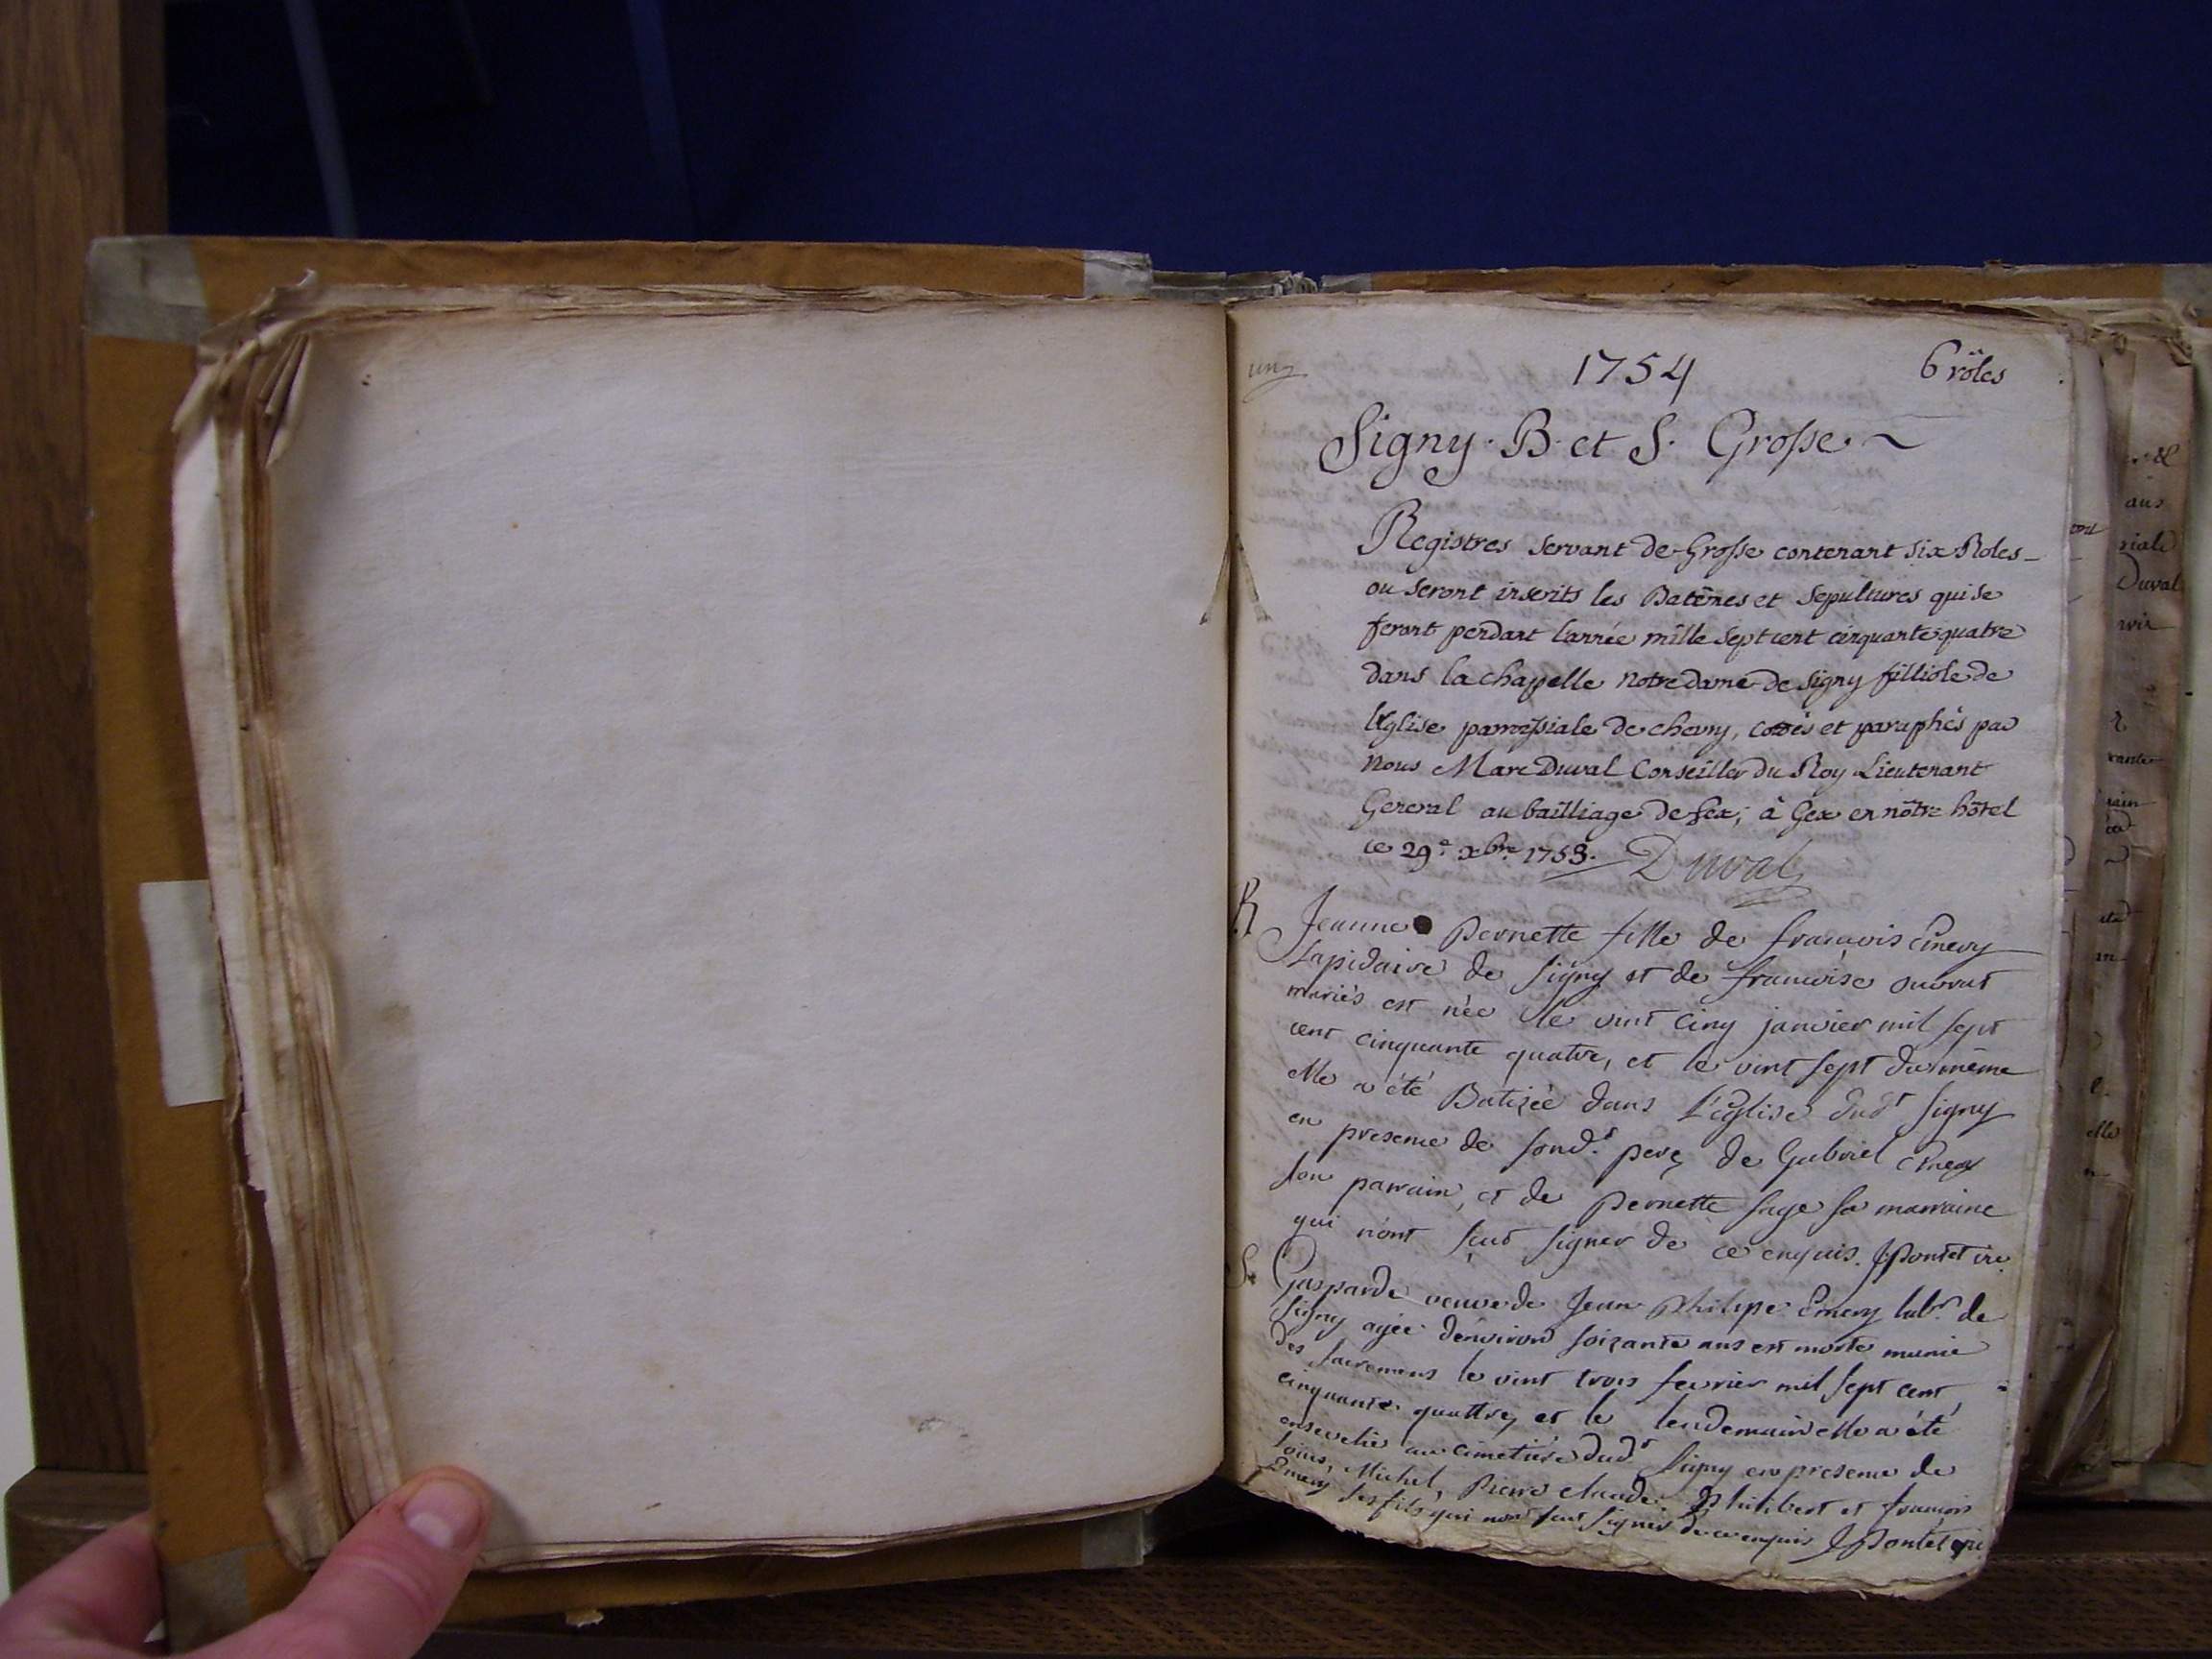 un
1754
6 rôles
Signy. B. et S. Grosse. ~
Registres servant de Grosse contenant six Roles
ou seront inscrits les Batêmes et Sepultures qui se
feront pendant l'année mille sept cent cinquante quatre
dans la chappelle Notre dame de Signy filliole de
l'Eglise paroissiale de chevry, cottés et paraphés par
Nous Marc Duval Conseiller du Roy Lieutenant
General au bailliage de Gex, à Gex en nôtre hôtel
ce 29e. xbre 1753. Duval
B Jeanne Pernette fille de francois Emery
Lapidaire de Signy et de francoise
mariés est née le vint cinq janvier mil sept
cent cinquante quatre, et le vint sept du même
elle a été Batizée dans l'église dudt Signy
en presence de sond. pere, de Gabriel Emery
son parrain, et de Pernette sage sa marraine
qui n'ont scut signer de ce enquis. J Pontet
S. Gasparde veuve de Jean Philipe Emery labr. de
Signy agée d'environ soizante ans est morte munie
des sacremens le vint trois fevrier mil sept cent
cinquante quattre, et le lendemain elle a été
ensevelie au cimetiére dudt Signy en presence de
Michel, Pierre claude, Philibert et francois
Emery ses fils qui n'ont scut signer de ce enquis J Pontet
aus
Duval
elle